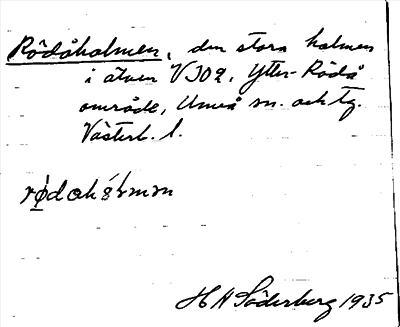 Rödåholmen, den stora holmen
i älven VJO2, Ytter-Rödå
område, Umeå sn. och tg.
Västerb. l.
H A Söderberg 1935